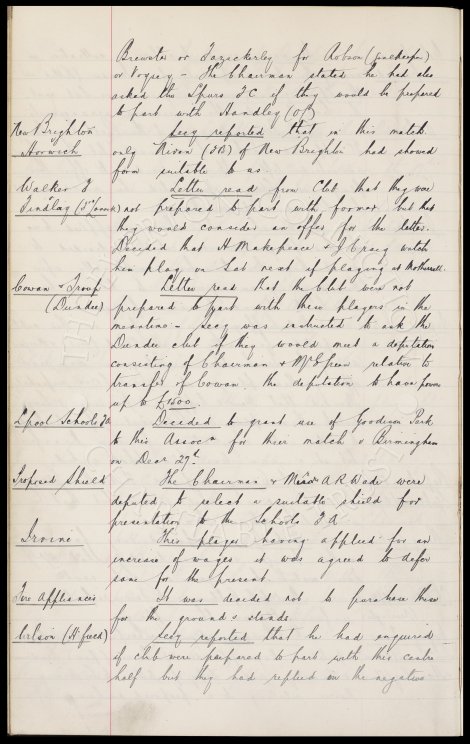 Brewster or Tazickerley for Robson (Goalkeeper)
or Voysey - The Chairman stated he had also
asked the Spurs F C if they would be prepared
to part with Handley (OF)
New Brighton Secy reported that in this match
Horwich only Nixon (IR) of New Brighton had showed
form suitable to us.
Walker & Letter read from Club that they were
Findlay not prepared to part with former but that
they would consider an offer for the latter.
Decided that H Makepeace & J Craig watch
him play on Sat next if playing at Motherwell.
Cowan & Troup Letter read that the Club were not
(Dundee) prepared to part with these players in the
meantime - Secy was instructed to ask the
Dundee club if they would meet a deputation
consisting of Chairman & Mr Green relative to
transfer of Cowan. the deputation to have power
up to £1400.
L'pool Schools FA Decided to grant use of Goodison Park
to this Assocn for their match v Birmingham
on Decr 29th.
Proposed Shield The Chairman & A R Wade were
deputed to select a suitable shield for
presentation to the Schools F A
Irvine This player having applied for an
increase of wages it was agreed to defer
same for the present
Fire Appliances It was decided not to purchase these
for the ground & stands
Wilson (H'field) Secy reported that he had enquired
if club were prepared to part with this centre
half but they had replied in the negative